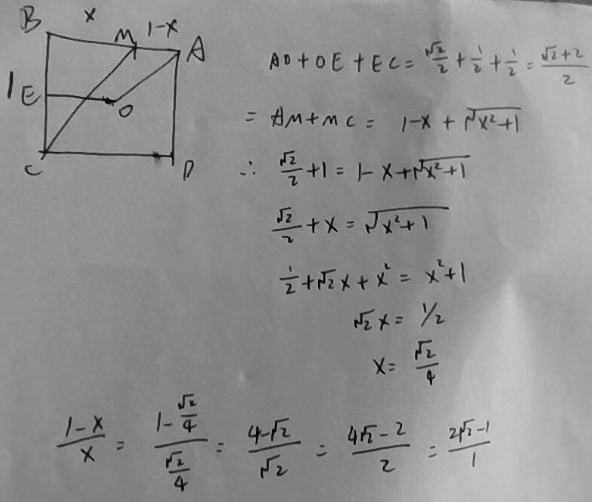 B x M 1-x A
1 E O
C D
AO + OE + EC = √2/2 + 1/2 + 1/2 = (√2+2)/2
= AM + MC = 1-x + √(x²+1)
∴ √2/2 + 1 = 1-x+√(x²+1)
√2/2 + x = √(x²+1)
1/2 + √2x + x² = x²+1
√2x = 1/2
x = √2/4
(1-x)/x = (1-√2/4)/(√2/4) = (4-√2)/√2 = (4√2-2)/2 = (2√2-1)/1